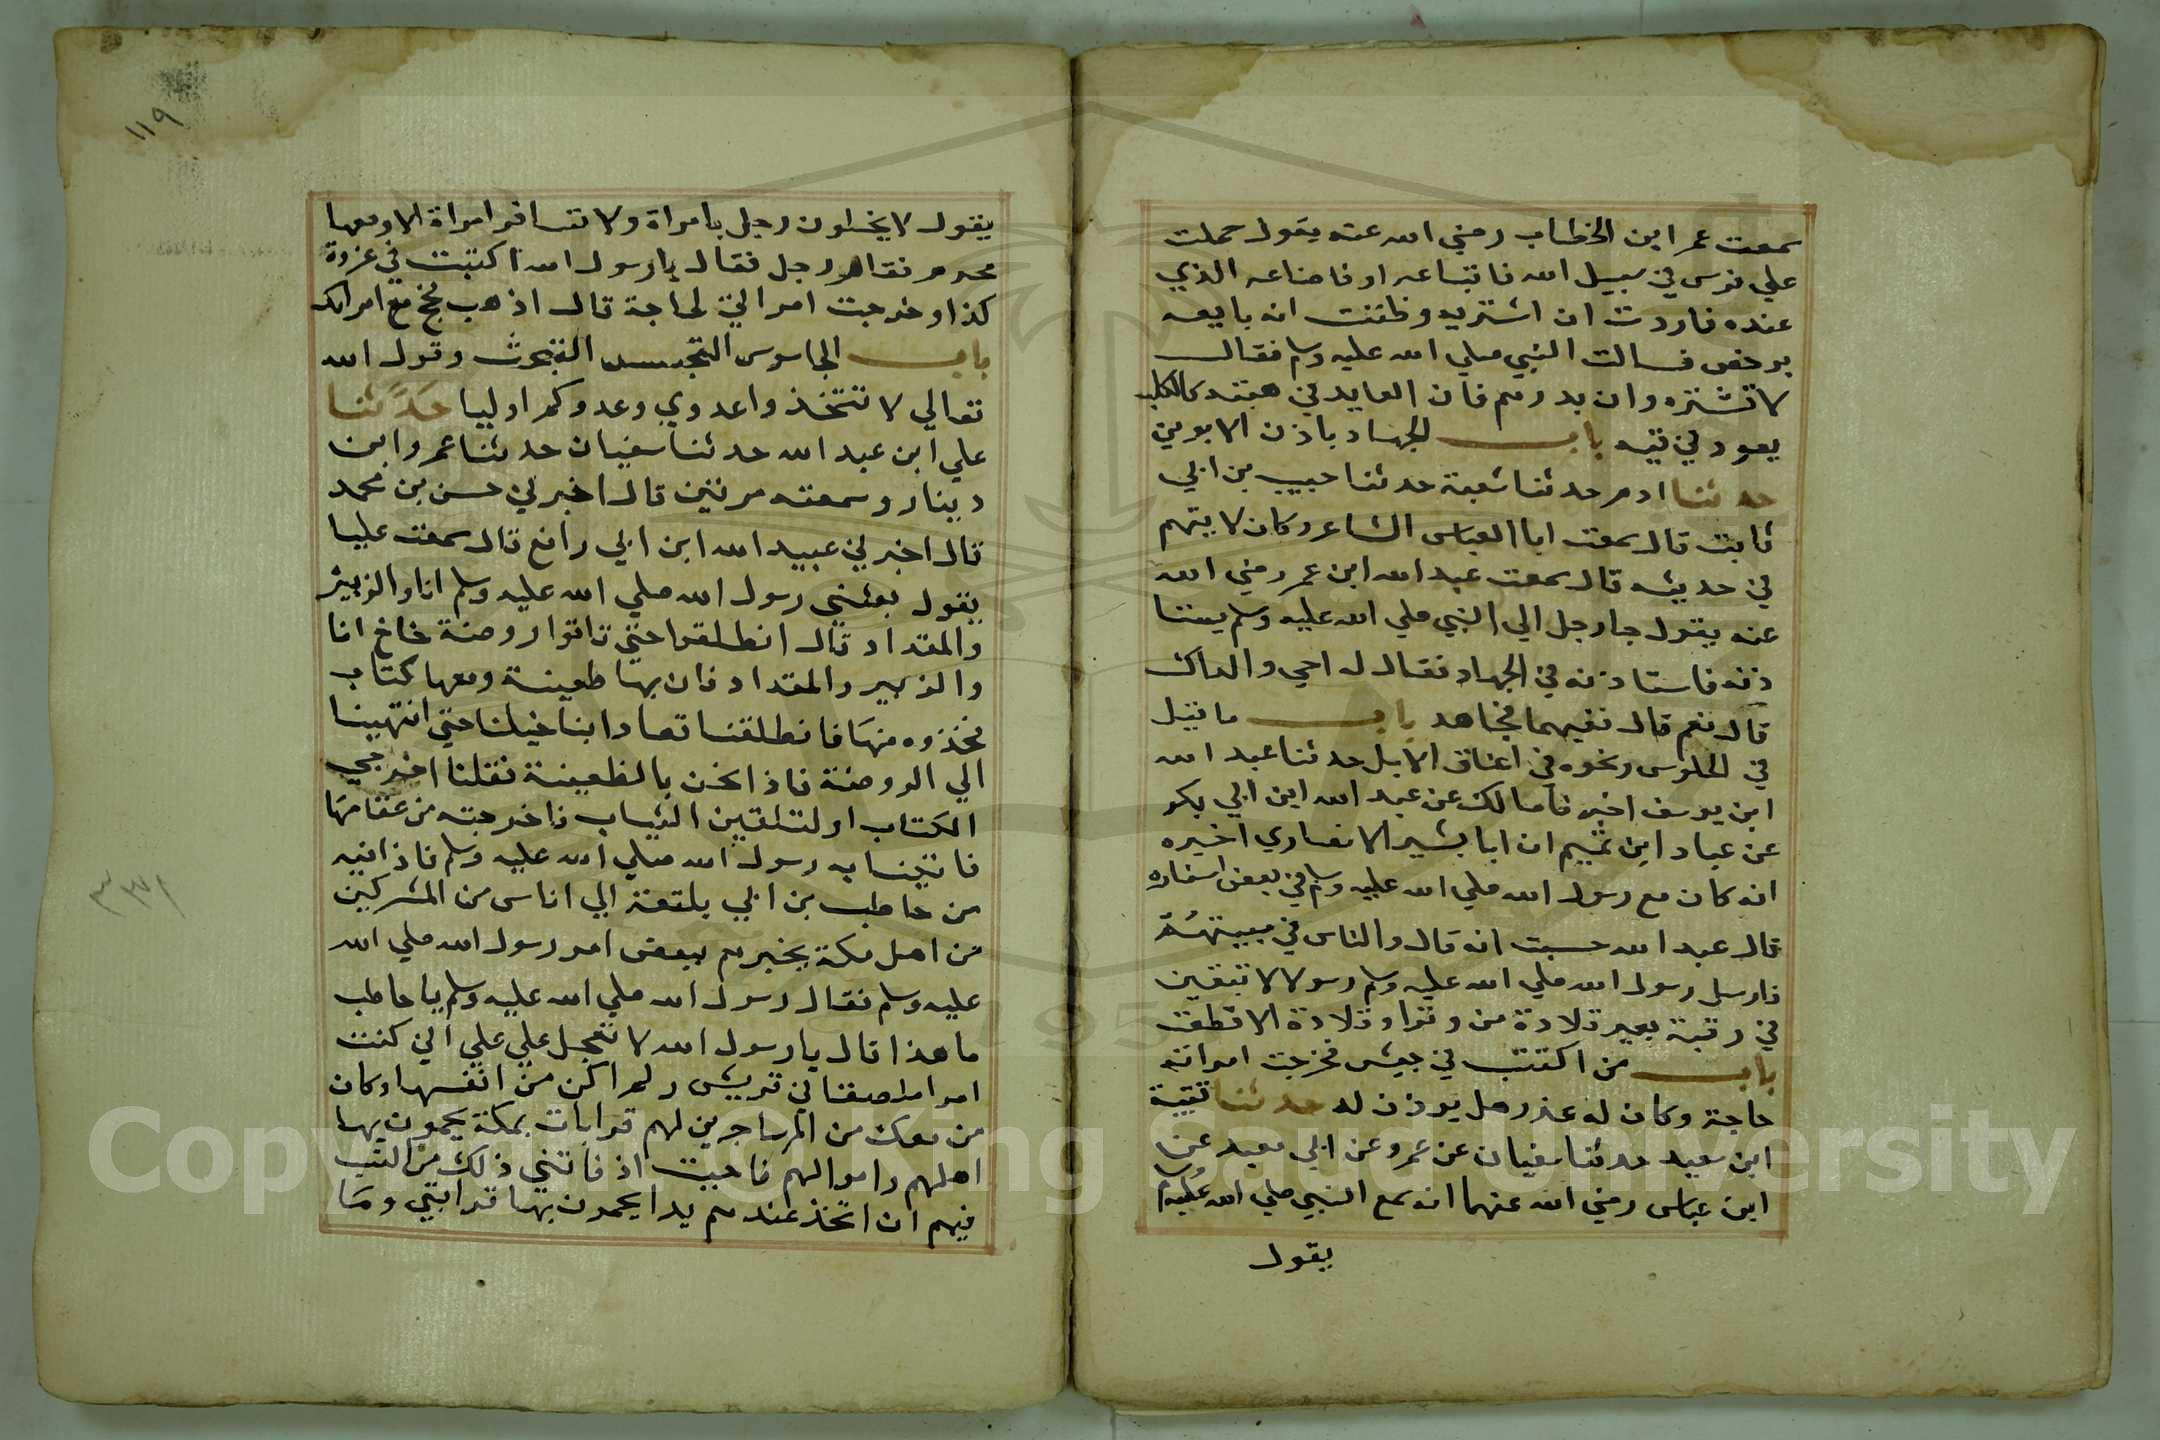 سمعت عمر ابن الخطاب رضي الله عنه يقول حملت
علي فرس في سبيل الله فابتاعه او فاضاعه الذي
عنده فاردت ان اشتريه وظننت انه بايعه
برخص فسالت النبي صلي الله عليه وسلم فقال
لا تشتره وان بدرهم فان العايد في هبته كالكلب
يعود في قيه باب الجهاد باذن الابوين
حدثنا ادم حدثنا شعبة حدثنا حبيب بن ابي
ثابت قال سمعت ابا العباس الشاعر وكان لا يتهم
في حديثه قال سمعت عبد الله ابن عمر رضي الله
عنه يقول جا رجل الي النبي صلي الله عليه وسلم يستا
ذنه فاستاذنه في الجهاد فقال له احي والداك
قال نعم قال ففيهما فجاهد باب ما قيل
في الجلوس ونحوه في اعناق الابل حدثنا عبد الله
ابن يوسف اخبرنا مالك عن عبد الله ابن ابي بكر
عن عباد ابن تميم ان ابا بشير الانصاري اخبره
انه كان مع رسول الله صلي الله عليه وسلم في بعض اسفاره
قال عبد الله حسبت انه قال والناس في مبيتهم
فارسل رسول الله صلي الله عليه وسلم رسولا لا تبقين
في رقبة بعير قلادة من وتر او قلادة الا قطعت
باب من اكتتب في جيش فخرجت امراته
حاجة وكان له عذر هل يوذن له حدثنا قتيبة
ابن سعيد حدثنا سفيان عن عمرو عن ابي معبد عن
ابن عباس رضي الله عنهما انه سمع النبي صلي الله عليه وسلم
يقول
١١٩
يقول لا يخلون رجل بامراة ولا تسافر امراة الا ومعها
محرم فقام رجل فقال يا رسول الله اكتتبت في غزوة
كذا وخرجت امراتي لحاجة قال اذهب فحج مع امراتك
باب الجاسوس التجسس التبحث وقول الله
تعالي لا تتخذوا عدوي وعدوكم اوليا حدثنا
علي ابن عبد الله حدثنا سفيان حدثنا عمرو ابن
دينار وسمعته مرتين قال اخبرني حسن بن محمد
قال اخبرني عبيد الله ابن ابي رافع قال سمعت عليا
يقول بعثني رسول الله صلي الله عليه وسلم انا والزبير
والمقداد قال انطلقوا حتي تاتوا روضة خاخ انا
والزبير والمقداد فان بها ظعينة ومعها كتاب
فخذوه منها فانطلقنا تعادا بنا خيلنا حتي انتهينا
الي الروضة فاذا نحن بالظعينة فقلنا اخرجي
الكتاب او لتلقين الثياب فاخرجته من عقاصها
فاتينا به رسول الله صلي الله عليه وسلم فاذا فيه
من حاطب بن ابي بلتعة الي اناس من المشركين
من اهل مكة يخبرهم ببعض امر رسول الله صلي الله
عليه وسلم فقال رسول الله صلي الله عليه وسلم يا حاطب
ما هذا قال يا رسول الله لا تعجل علي علي اني كنت
امرا ملصقا في قريش ولم اكن من انفسها وكان
من معك من المهاجرين لهم قرابات بمكة يحمون بها
اهلهم واموالهم فاحببت اذ فاتني ذلك من النسب
فيهم ان اتخذ عندهم يدا يحمون بها قرابتي وما
Copyright © King Saud University